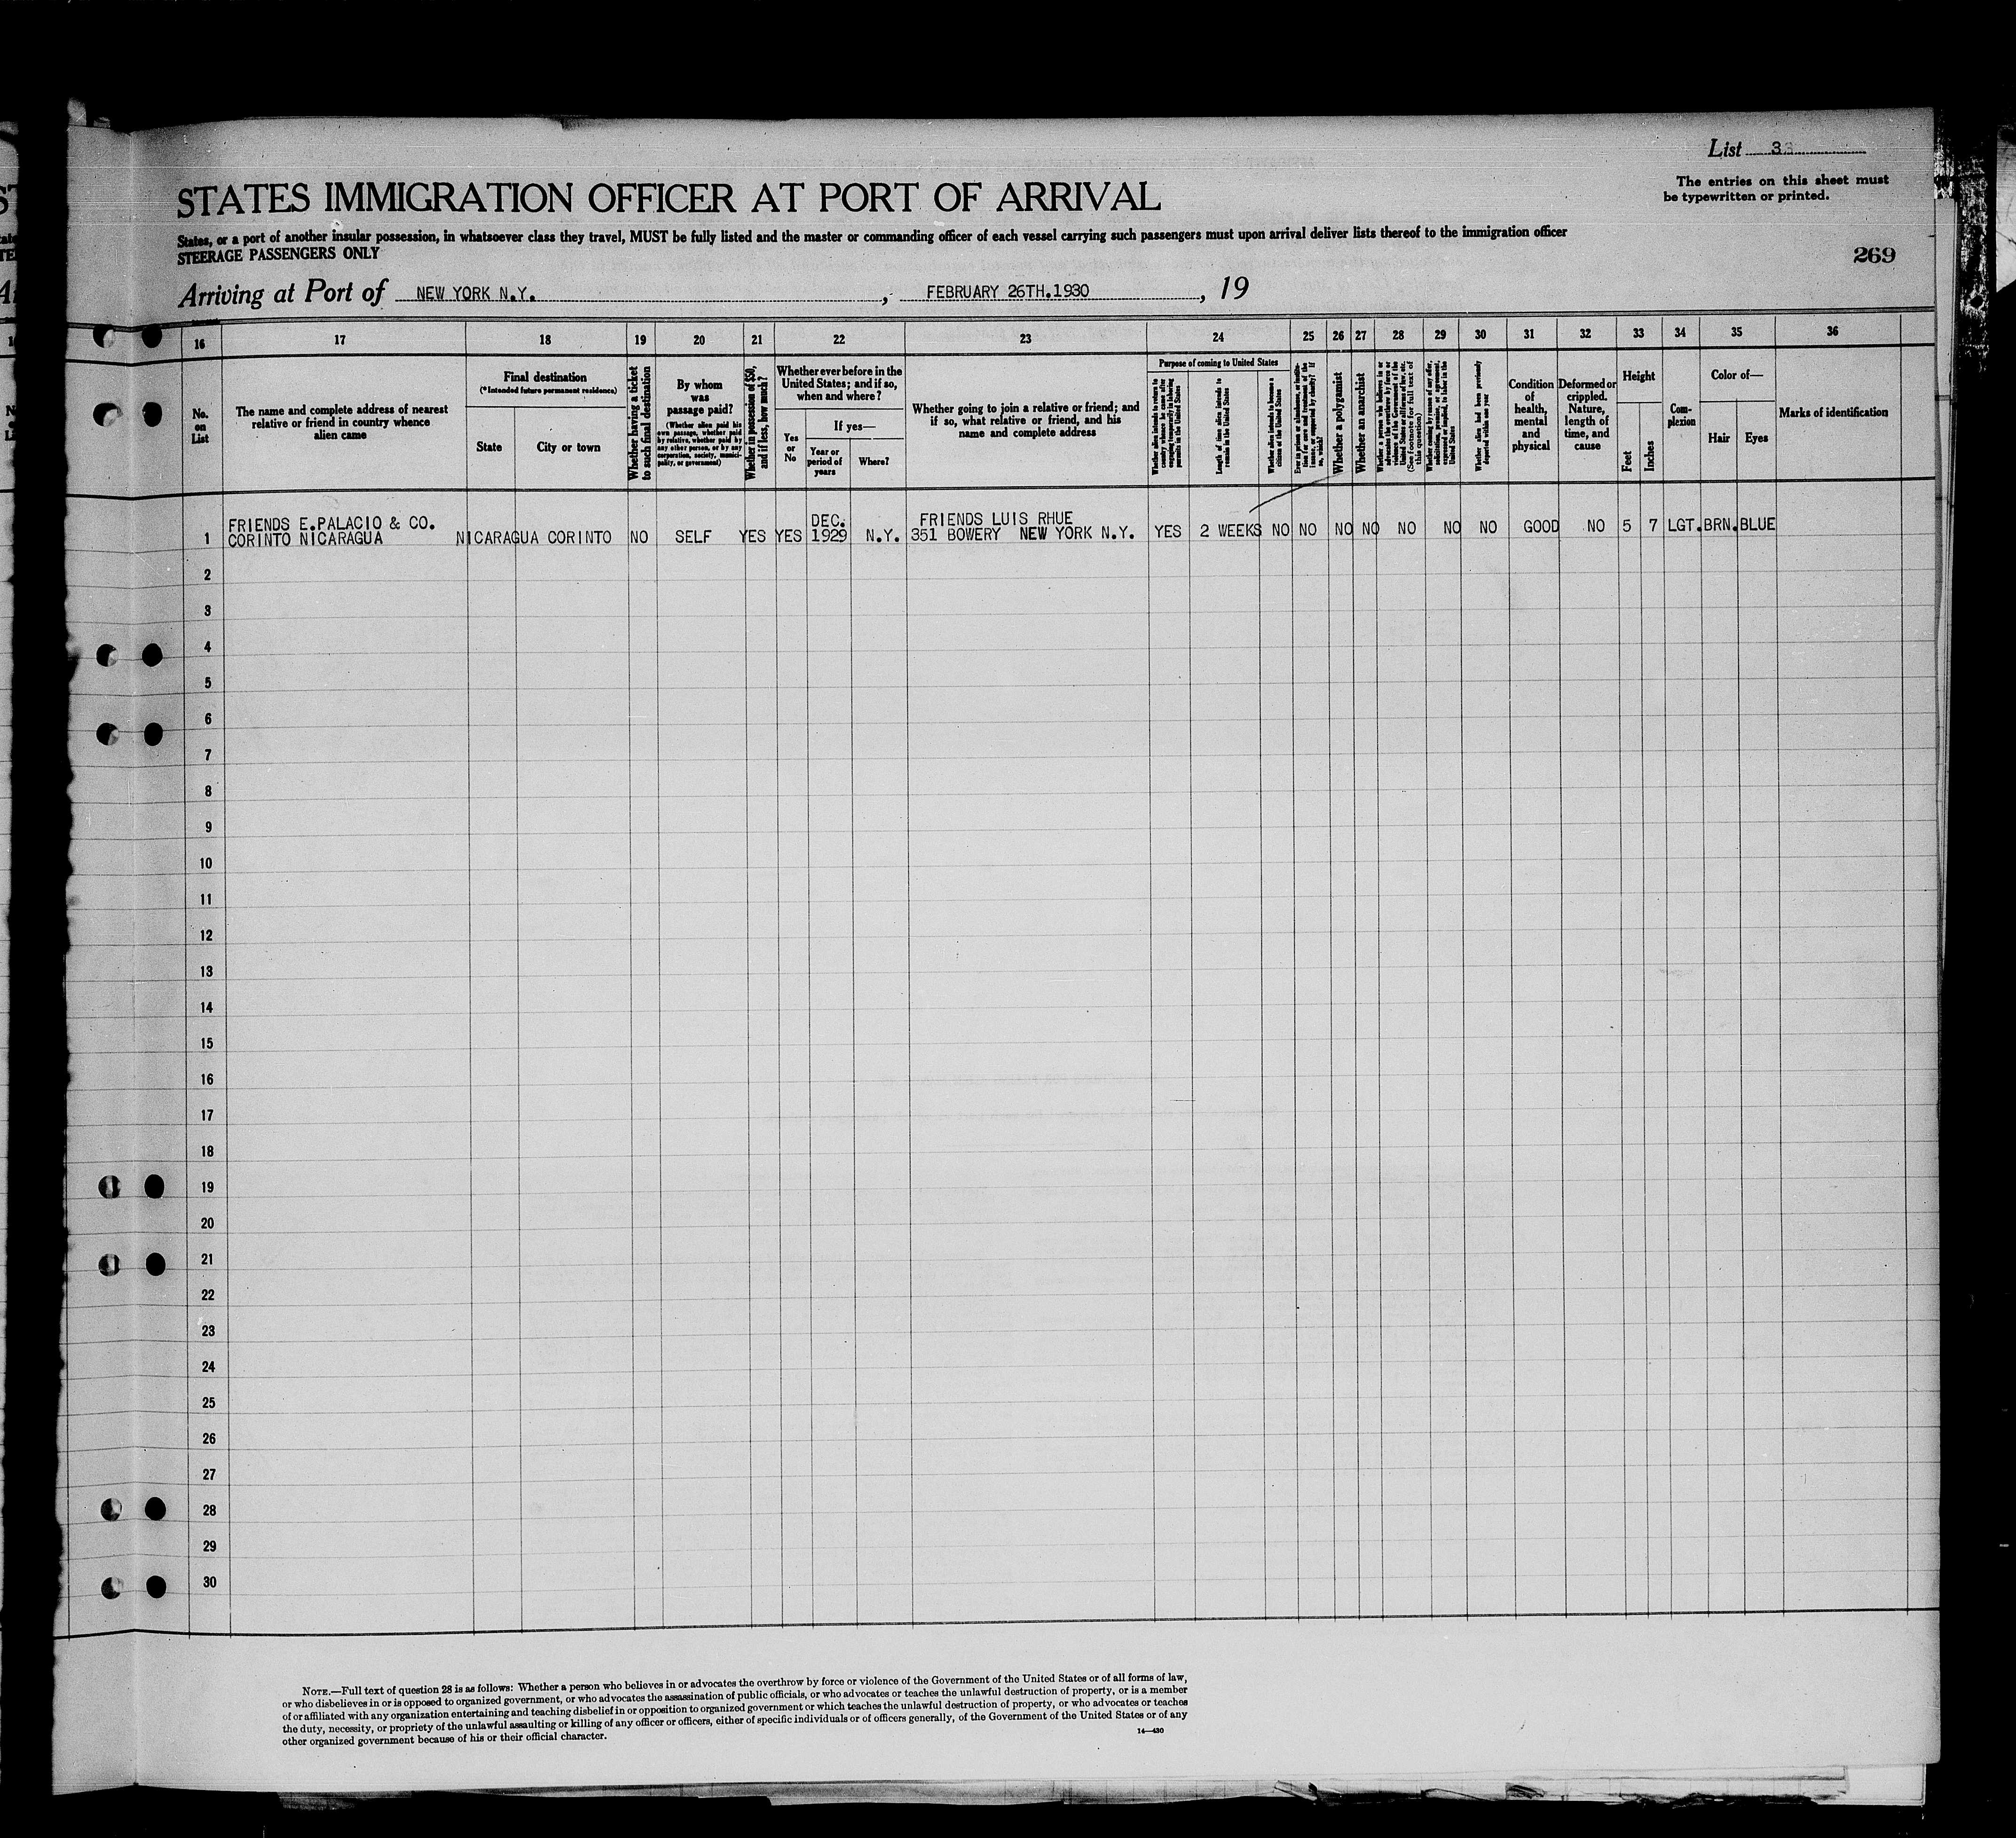 List 33
The entries on this sheet must
be typewritten or printed.
STATES IMMIGRATION OFFICER AT PORT OF ARRIVAL
States, or a port of another insular possession, in whatsoever class they travel, MUST be fully listed and the master or commanding officer of each vessel carrying such passengers must upon arrival deliver lists thereof to the immigration officer
STEERAGE PASSENGERS ONLY
269
Arriving at Port of NEW YORK N.Y. , FEBRUARY 26TH.1930 , 19
16 17 18 19 20 21 22 23 24 25 26 27 28 29 30 31 32 33 34 35 36
No.
on
List
The name and complete address of nearest
relative or friend in country whence
alien came
Final destination
(*Intended future permanent residence)
State
City or town
Whether having a ticket
to such final destination
By whom
was
passage paid?
(Whether alien paid his
own passage, whether paid
by relative, whether paid by
any other person, or by any
corporation, society, munici-
pality, or government)
Whether in possession of $50,
and if less, how much?
Whether ever before in the
United States; and if so,
when and where?
Yes
or
No
If yes—
Year or
period of
years
Where?
Whether going to join a relative or friend; and
if so, what relative or friend, and his
name and complete address
Purpose of coming to United States
Whether alien intends to return to
country whence he came after
engaging temporarily in laboring
pursuits in the United States
Length of time alien intends to
remain in the United States
Whether alien intends to become a
citizen of the United States
Ever in prison or almshouse, or institu-
tion for care and treatment of the
insane, or supported by charity? If
so, which?
Whether a polygamist
Whether an anarchist
Whether a person who believes in or
advocates the overthrow by force or
violence of the Government of the
United States or all forms of law, etc.
(See footnote for full text of
this question)
Whether coming by reason of any offer,
solicitation, promise, or agreement,
expressed or implied, to labor in the
United States
Whether alien had been previously
deported within one year
Condition
of
health,
mental
and
physical
Deformed or
crippled.
Nature,
length of
time, and
cause
Height
Feet
Inches
Com-
plexion
Color of—
Hair
Eyes
Marks of identification
FRIENDS E.PALACIO & CO. DEC. FRIENDS LUIS RHUE
1 CORINTO NICARAGUA NICARAGUA CORINTO NO SELF YES YES 1929 N.Y. 351 BOWERY NEW YORK N.Y. YES 2 WEEKS NO NO NO NO NO NO NO GOOD NO 5 7 LGT. BRN. BLUE
2
3
4
5
6
7
8
9
10
11
12
13
14
15
16
17
18
19
20
21
22
23
24
25
26
27
28
29
30
NOTE.—Full text of question 28 is as follows: Whether a person who believes in or advocates the overthrow by force or violence of the Government of the United States or of all forms of law,
or who disbelieves in or is opposed to organized government, or who advocates the assassination of public officials, or who advocates or teaches the unlawful destruction of property, or is a member
of or affiliated with any organization entertaining and teaching disbelief in or opposition to organized government or which teaches the unlawful destruction of property, or who advocates or teaches
the duty, necessity, or propriety of the unlawful assaulting or killing of any officer or officers, either of specific individuals or of officers generally, of the Government of the United States or of any
other organized government because of his or their official character.
14—430